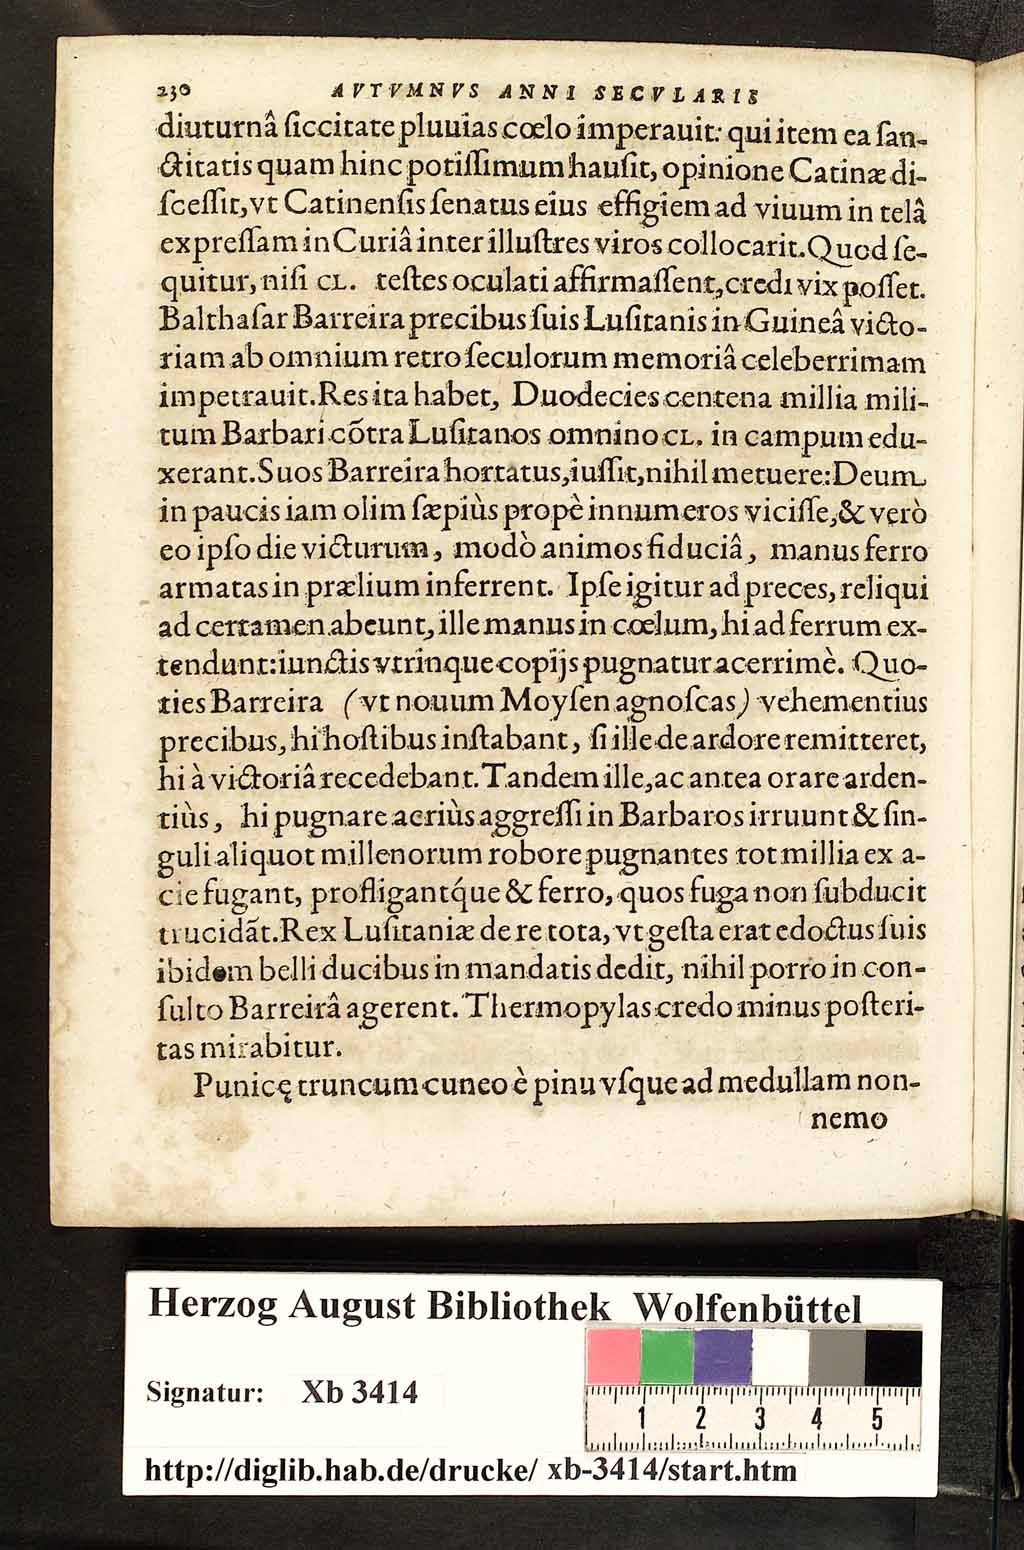 230 AVTVMNVS ANNI SECVLARIS
diuturnâ ſiccitate pluuias cœlo imperauit: qui item ea ſan-
ctitatis quam hinc potiſſimum hauſit, opinione Catinæ di-
ſceſſit, vt Catinenſis ſenatus eius effigiem ad viuum in telâ
expreſſam in Curiâ inter illuſtres viros collocarit. Quod ſe-
quitur, niſi CL. teſtes oculati affirmaſſent, credi vix poſſet.
Balthaſar Barreira precibus ſuis Luſitanis in Guineâ victo-
riam ab omnium retro ſeculorum memoriâ celeberrimam
impetrauit. Res ita habet, Duodecies centena millia mili-
tum Barbari cõtra Luſitanos omnino CL. in campum edu-
xerant. Suos Barreira hortatus, iuſſit, nihil metuere: Deum
in paucis iam olim ſæpiùs propè innumeros viciſſe, & verò
eo ipſo die victurum, modò animos fiduciâ, manus ferro
armatas in prælium inferrent. Ipſe igitur ad preces, reliqui
ad certamen abeunt, ille manus in cœlum, hi ad ferrum ex-
tendunt: iunctis vtrinque copijs pugnatur acerrimè. Quo-
ties Barreira (vt nouum Moyſen agnoſcas) vehementius
precibus, hi hoſtibus inſtabant, ſi ille de ardore remitteret,
hi à victoriâ recedebant. Tandem ille, ac antea orare arden-
tiùs, hi pugnare acriùs aggreſſi in Barbaros irruunt & ſin-
guli aliquot millenorum robore pugnantes tot millia ex a-
cie fugant, profligantq́ue & ferro, quos fuga non ſubducit
trucidãt. Rex Luſitaniæ de re tota, vt geſta erat edoctus ſuis
ibidem belli ducibus in mandatis dedit, nihil porro in con-
ſulto Barreirâ agerent. Thermopylas credo minus poſteri-
tas mirabitur.
Punicę truncum cuneo è pinu vſque ad medullam non-
nemo
Herzog August Bibliothek Wolfenbüttel
Signatur: Xb 3414
1 2 3 4 5
http://diglib.hab.de/drucke/ xb-3414/start.htm